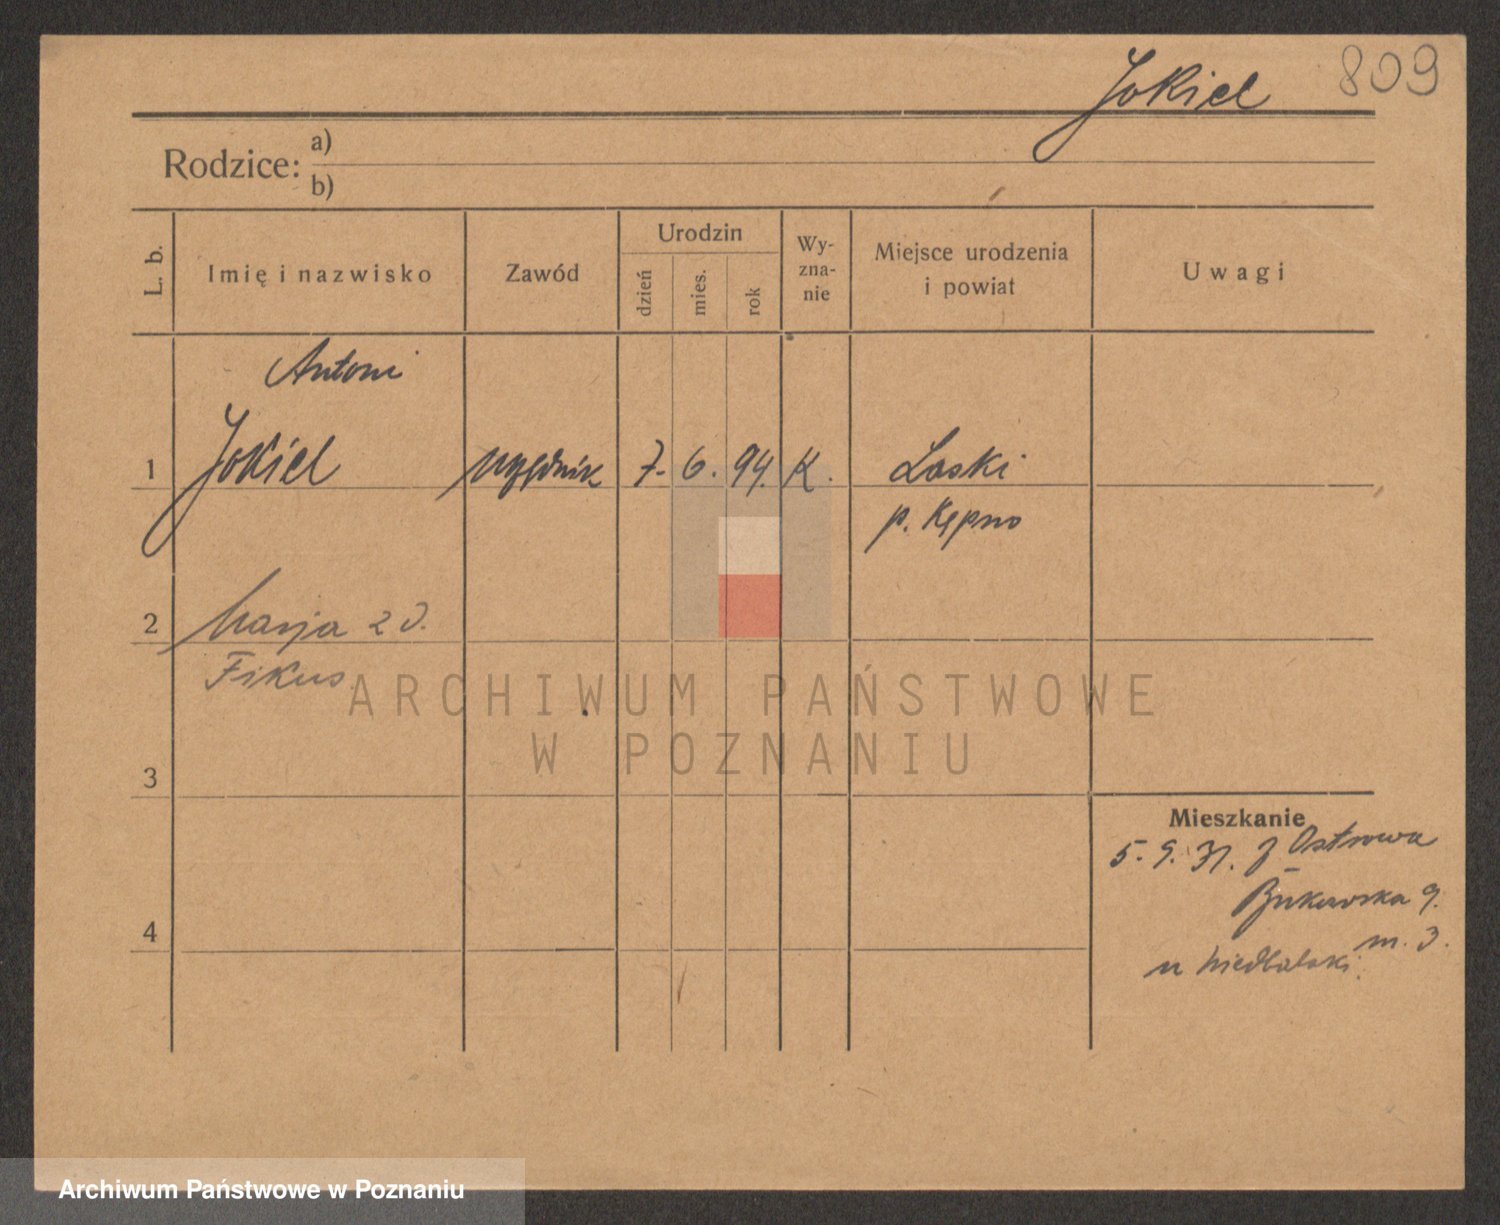 Jokiel 809
Rodzice: a)
b)
L. b.
Imię i nazwisko
Zawód
Urodzin
dzień
mies.
rok
Wy-
zna-
nie
Miejsce urodzenia
i powiat
Uwagi
Antoni
1 Jokiel urzędnik 7. 6. 94. K. Laski
p. Kępno
2 Marja z d.
Fikus
3
4
Mieszkanie
5. 9. 31. z Ostrowa
Bukowska 9.
m. 3.
u
ARCHIWUM PAŃSTWOWE
W POZNANIU
Archiwum Państwowe w Poznaniu